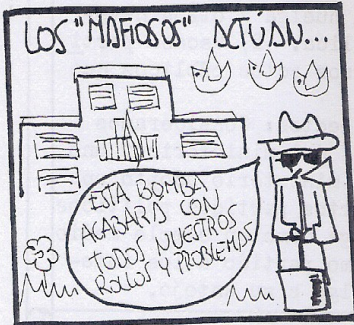 LOS "MAFIOSOS" ACTÚAN...
ESTA BOMBA
ACABARÁ CON
TODOS NUESTROS
ROLLOS Y PROBLEMAS